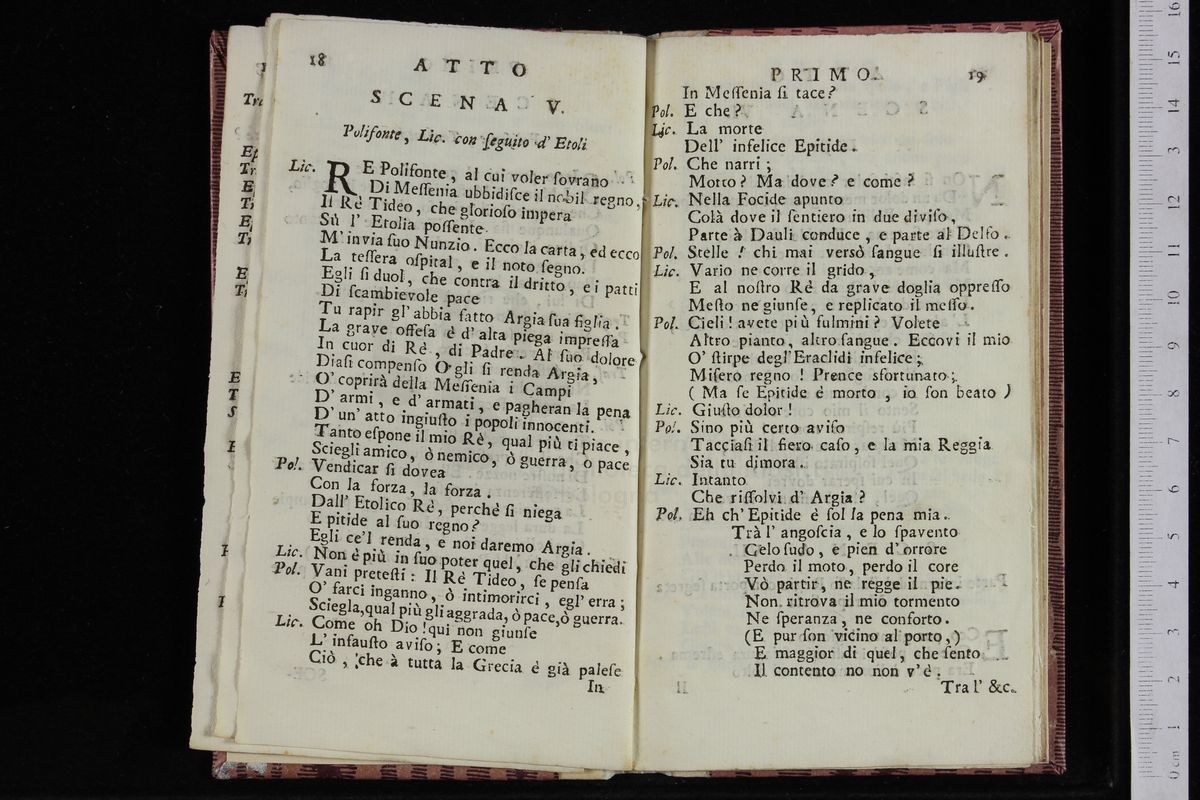 18
ATTO
SCENA V.
Polifonte, Lic. con ſeguito d' Etoli
Lic. RE Polifonte, al cui voler ſovrano
Di Meſſenia ubbidiſce il nobil regno,
Il Rè Tideo, che glorioſo impera
Sù l' Etolia poſſente
M'invia ſuo Nunzio. Ecco la carta, ed ecco
La teſſera oſpital, e il noto ſegno.
Egli ſi duol, che contra il dritto, e i patti
Di ſcambievole pace
Tu rapir gl'abbia fatto Argia ſua figlia.
La grave offeſa è d'alta piega impreſſa
In cuor di Rè, di Padre. Al ſuo dolore
Diaſi compenſo O gli ſi renda Argia,
O' coprirà della Meſſenia i Campi
D' armi, e d'armati, e pagheran la pena
D' un' atto ingiuſto i popoli innocenti.
Tanto eſpone il mio Rè, qual più ti piace,
Sciegli amico, ò nemico, ò guerra, o pace
Pol. Vendicar ſi dovea
Con la forza, la forza.
Dall' Etolico Rè, perchè ſi niega
E pitide al ſuo regno?
Egli ce'l renda, e noi daremo Argia.
Lic. Non è più in ſuo poter quel, che gli chiedi
Pol. Vani preteſti: Il Rè Tideo, ſe penſa
O' farci inganno, ò intimorirci, egl' erra;
Sciegla, qual più gli aggrada, ò pace, ò guerra.
Lic. Come oh Dio! qui non giunſe
L' infauſto aviſo; E come
Ciò, che à tutta la Grecia è già paleſe
In
PRIMO.
19
In Meſſenia ſi tace?
Pol. E che?
Lic. La morte
Dell' infelice Epitide.
Pol. Che narri;
Morto? Ma dove? e come?
Lic. Nella Focide apunto
Colà dove il ſentiero in due diviſo,
Parte à Dauli conduce, e parte al Delfo.
Pol. Stelle! chi mai versò ſangue ſi illuſtre.
Lic. Vario ne corre il grido,
E al noſtro Rè da grave doglia oppreſſo
Meſto ne giunſe, e replicato il meſſo.
Pol. Cieli! avete più fulmini? Volete
Altro pianto, altro ſangue. Eccovi il mio
O' ſtirpe degl'Eraclidi infelice;
Miſero regno! Prence sfortunato;
(Ma ſe Epitide è morto, io ſon beato)
Lic. Giuſto dolor!
Pol. Sino più certo aviſo
Tacciaſi il fiero caſo, e la mia Reggia
Sia tu dimora.
Lic. Intanto
Che riſſolvi d' Argia?
Pol. Eh ch' Epitide è ſol la pena mia.
Trà l' angoſcia, e lo ſpavento
Gelo ſudo, e pien d'orrore
Perdo il moto, perdo il core
Vò partir, ne regge il pie.
Non ritrova il mio tormento
Ne ſperanza, ne conforto.
(E pur ſon vicino al porto,)
E maggior di quel, che ſento
Il contento no non v'è.
Tra l' &c.